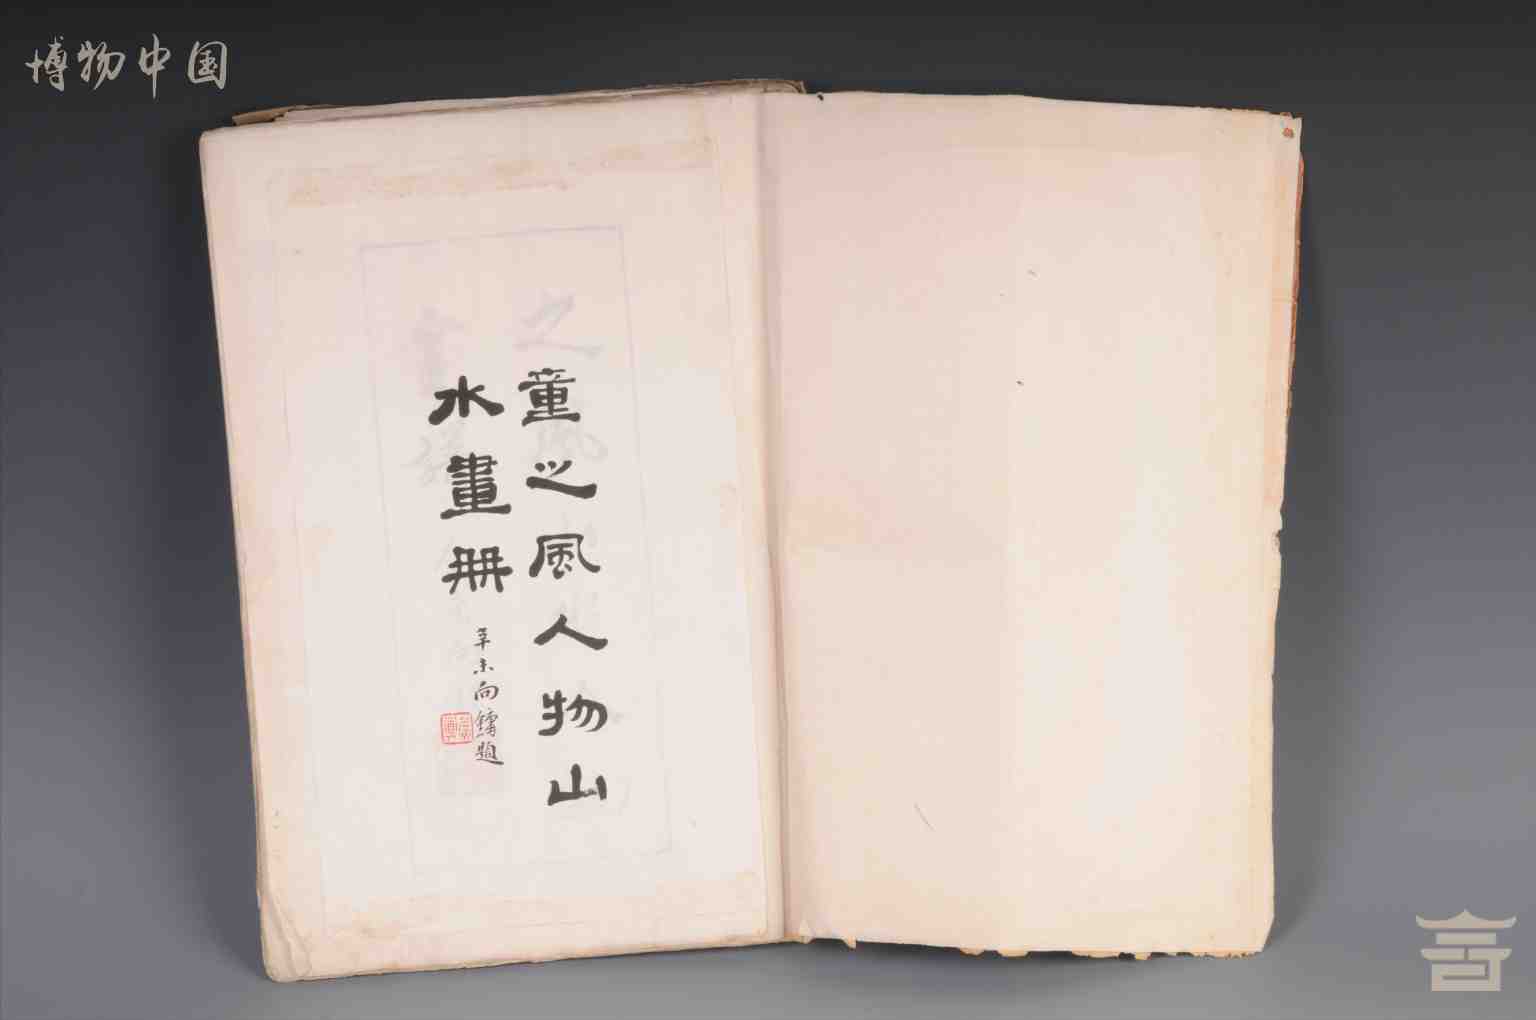 博物中国
童之風人物山
水畫册
辛未向鏞題